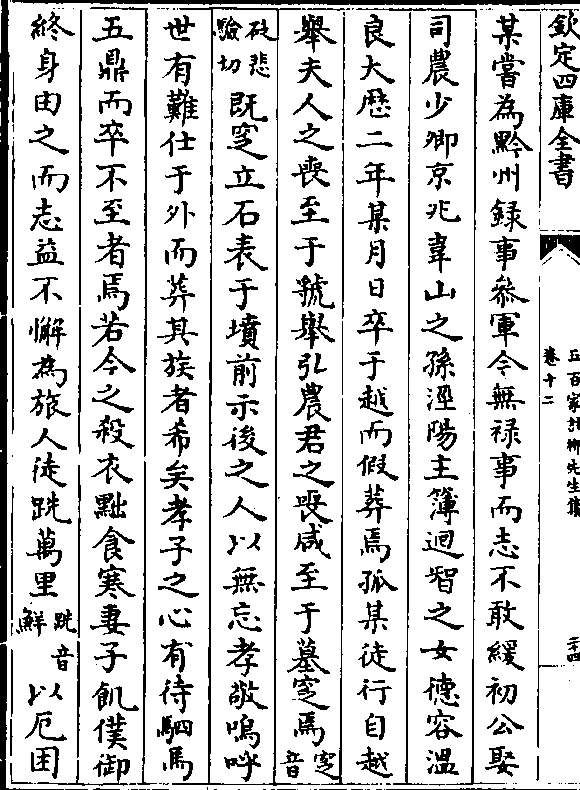 欽定四庫全書
卷十二
五百家註柳先生集
二十四
某嘗為黔州録事叅軍今無禄事而志不敢緩初公娶
司農少卿京兆韋山之孫涇陽主簿迥智之女德容温
良大歴二年某月日卒于越而假葬焉孤某徒行自越
舉夫人之喪至于虢舉弘農君之喪咸至于墓窆焉窆音
砭悲驗切既窆立石表于墳前示後之人以無忘孝敬嗚呼
世有難仕于外而葬其族者希矣孝子之心有待駟馬
五鼎而卒不至者焉若今之殺衣黜食寒妻子飢僕御
終身由之而志益不懈為旅人徒跣萬里跣音鮮以厄困